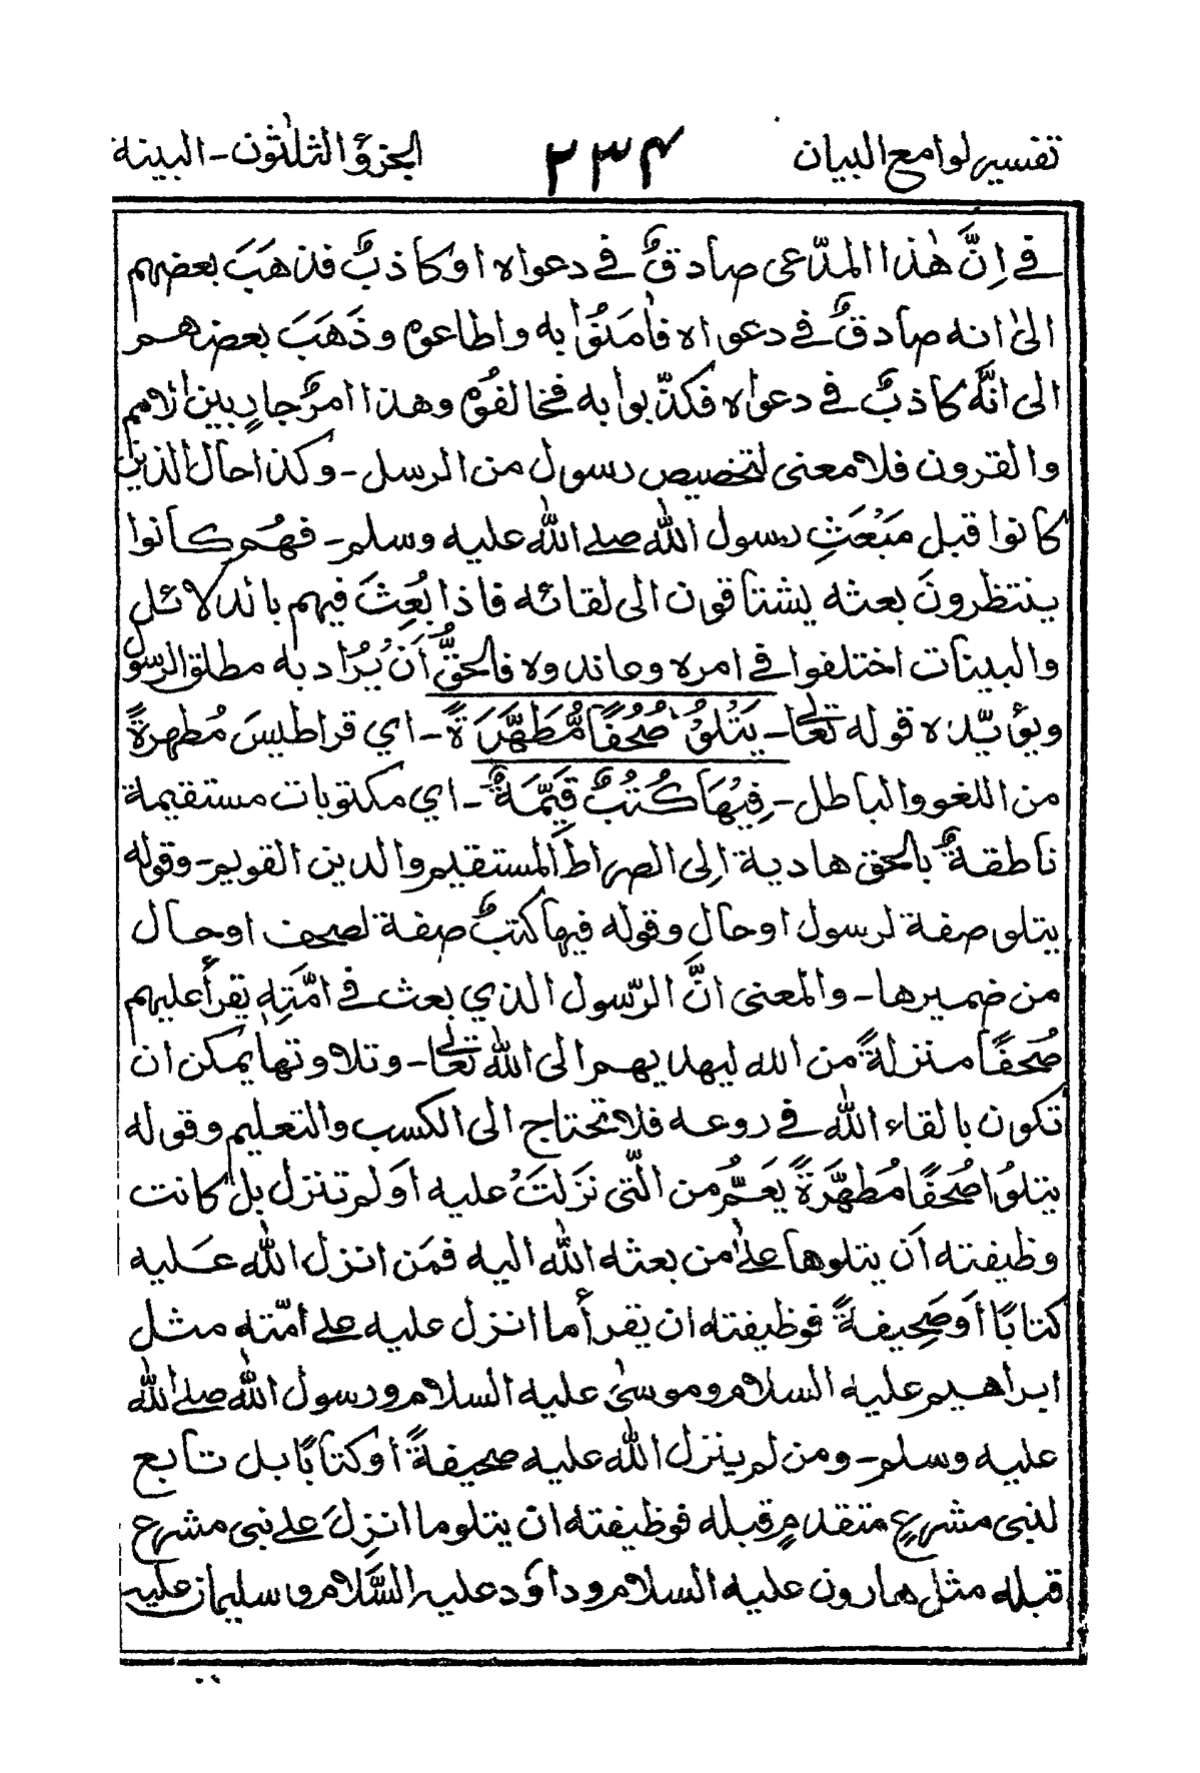 تفسير لوامع البيان ٢٣٤ الجزؤ الثلٰثون - البينة
في اِنَّ هٰذا المدّعى صادقٌ في دعواه اوكاذبٌ فذهَبَ بعضهم
الىٰ انه صادقٌ في دعواه فاٰمَنُوْا به واطاعوه وذَهَبَ بعضهم
الى انَّه كاذبٌ في دعواه فكذّبوا به فخالفوْه وهذا امرٌ جارٍ بين الامم
والقرون فلا معنى لتخصيص رسول من الرسل - وكذا حال الذين
كانوا قبل مَبْعَثِ رسول الله صلى الله عليه وسلم - فهُم كانوا
ينتظرونَ بعثه يشتاقون الى لقائه فاذا بُعِثَ فيهم بالدلائل
والبينات اختلفوا في امره وعاندوه فالحقُّ اَنْ يُرَاد به مطلق الرسول
ويؤيّده قوله تعالى - يَتْلُوْ صُحُفًا مُّطَهَّرَةً - اي قراطيسَ مُطهرةً
من اللغو والباطل - فِيْهَا كُتُبٌ قَيِّمَةٌ - اي مكتوبات مستقيمة
ناطقةٌ بالحق هادية اِلى الصراط المستقيم والدين القويم - وقوله
يتلو صفة لرسول او حال وقوله فيها كتبٌ صفة لصحف او حال
من ضميرها - والمعنى انَّ الرّسول الذي بعث في امّتِهٖ يقرأ عليهم
صُحفًا منزلةً من الله ليهديهم الى الله تعالى - وتلاوتها يمكن ان
تكون بالقاء الله في روعه فلا تحتاج الى الكسب والتعليم وقوله
يتلوُا صُحفًا مُطهَّرةً يَعُمُّ من الّتى نَزَلَتْ عليه اَو لم تنزل بل كانت
وظيفته اَن يتلوها علىٰ من بعثه الله اليه فمَن انزل الله عليه
كتابًا اَو صَحِيفةً فوظيفته ان يقرأ ما انزل عليه على امّته مثل
ابراهيم عليه السلام وموسىٰ عليه السلام ورسول الله صلى الله
عليه وسلم - ومن لم ينزل الله عليه صحيفةً او كتابًا بل تابع
لنبى مشرعٍ متقدمٍ قبله فوظيفته ان يتلو ما انزِلَ على نبى مشرع
قبله مثل هارون عليه السلام وداوٗد عليه السَّلام وسليمان عليه